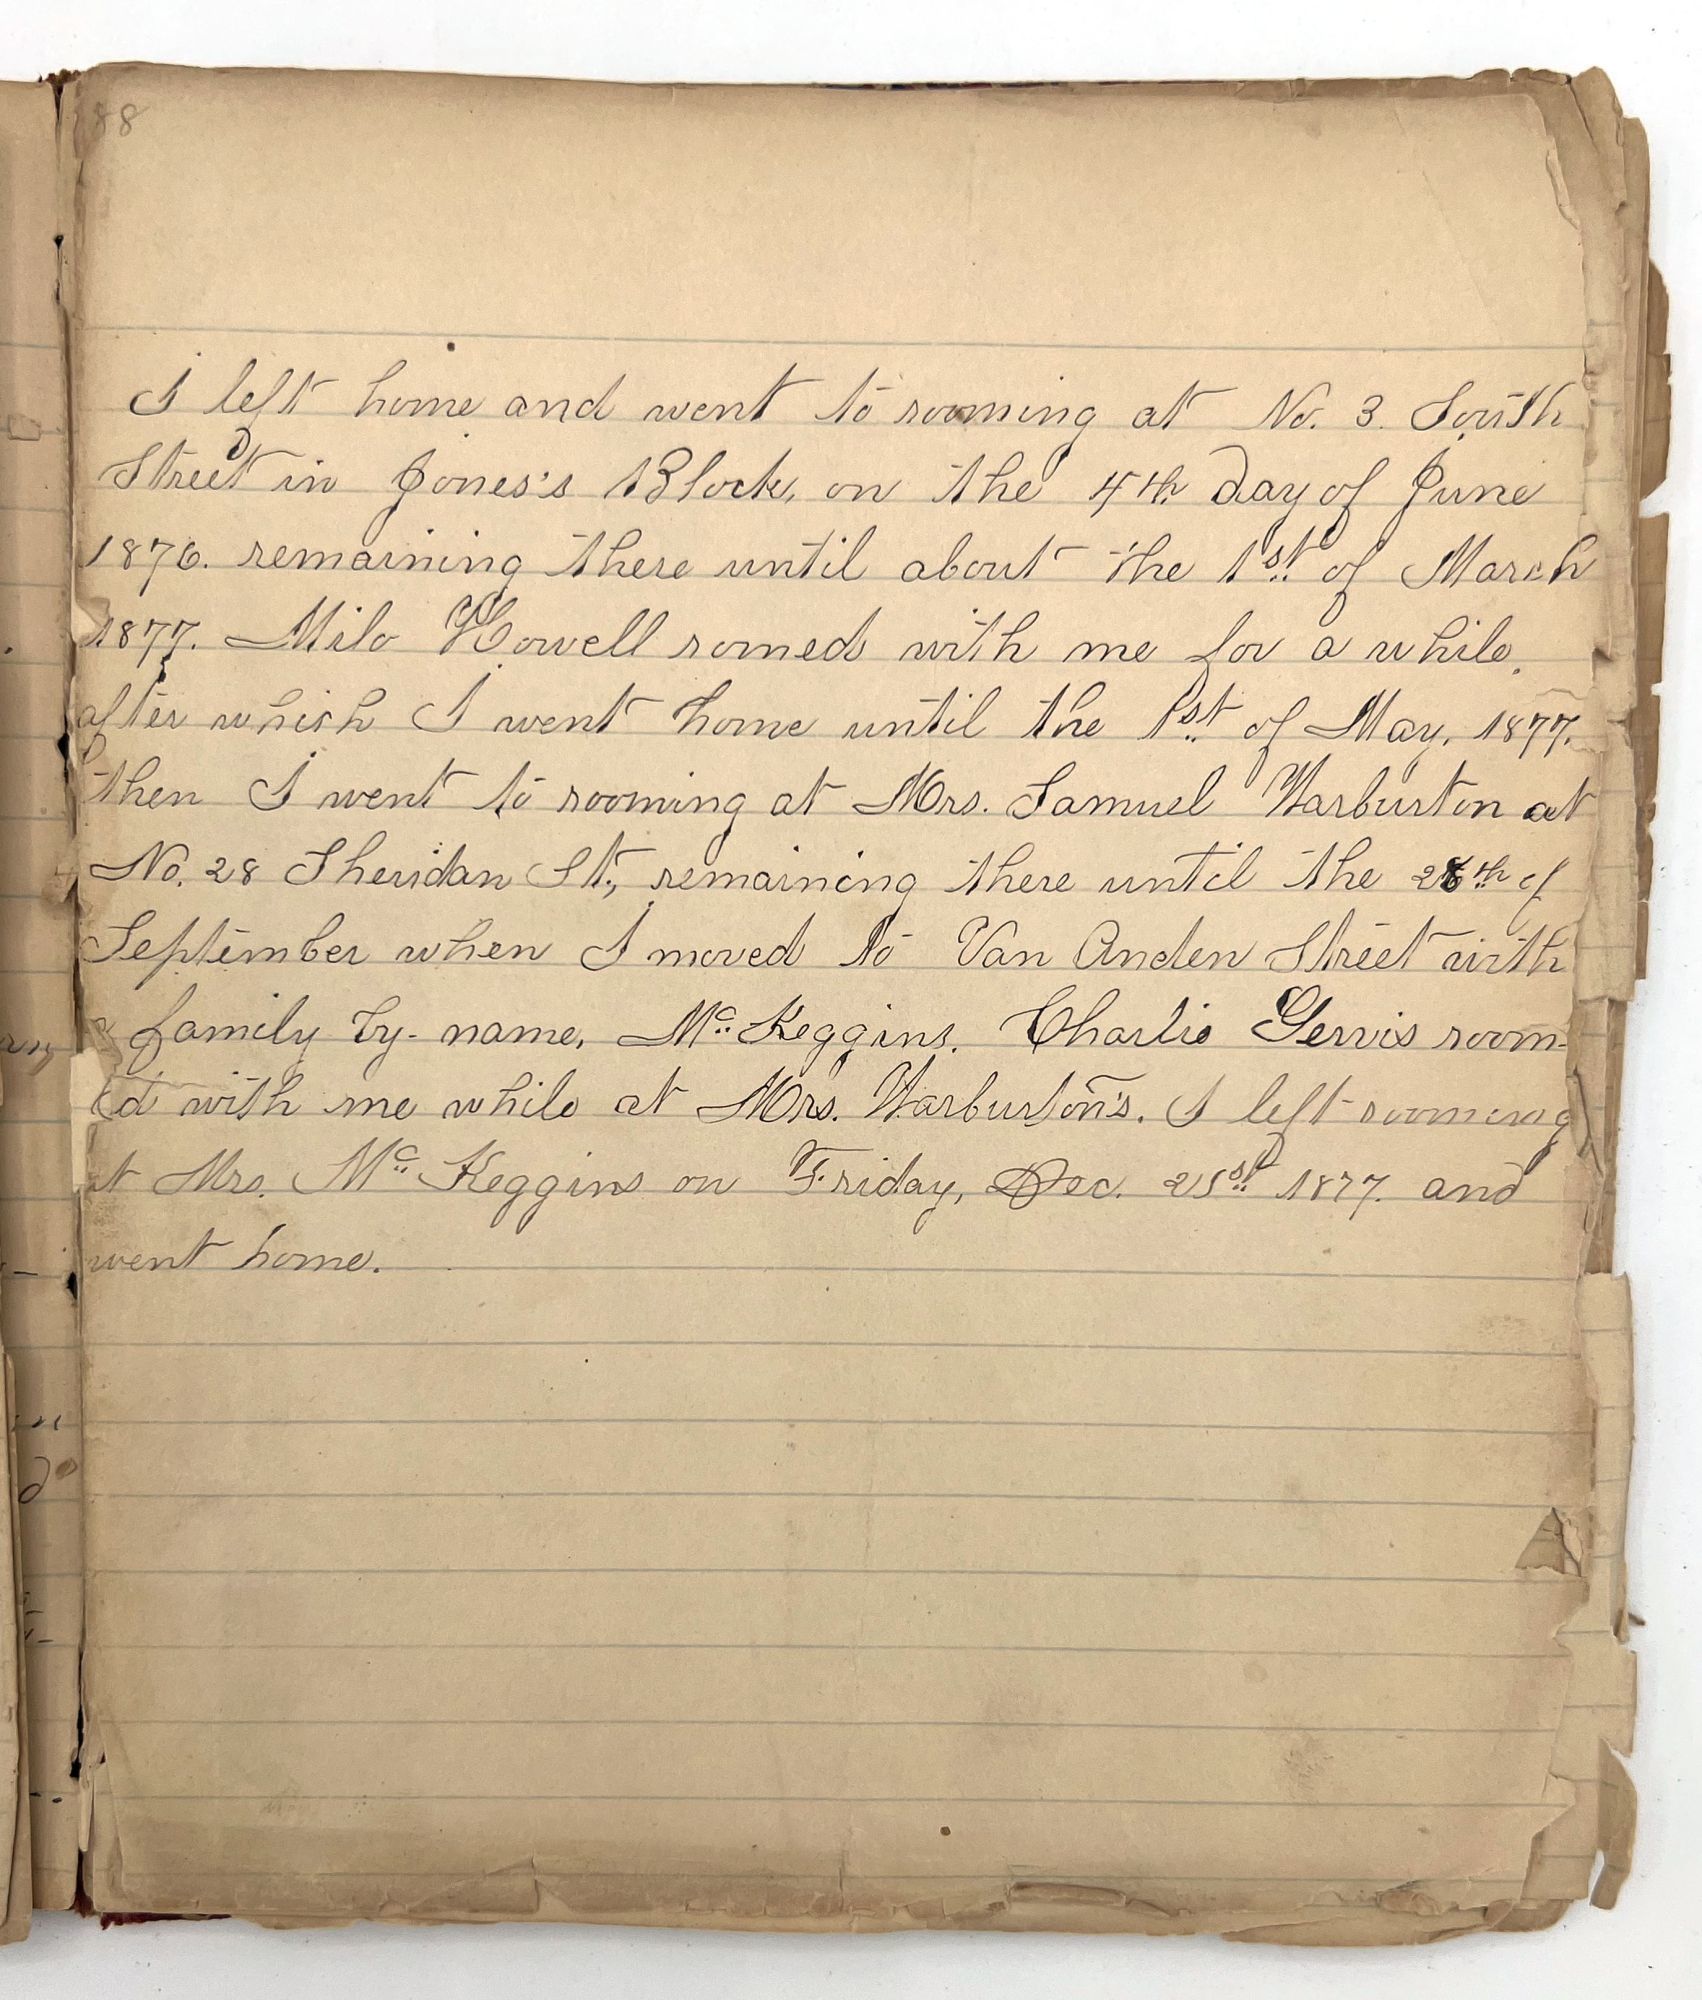 88
I left home and went to rooming at No. 3. South
Street in Jones's Block, on the 4th day of June
1876. remaining there until about the 1st of March
1877. Milo Howell romed with me for a while,
after which I went home until the 1st of May, 1877.
then I went to rooming at Mrs. Samuel Warburton at
No. 28 Sheridan St., remaining there until the 28th of
September when I moved to Van Anden Street with
a family by name, Mc Keggins. Charlie Gervis room-
ed with me while at Mrs. Warburton's. I left rooming
at Mrs. Mc Keggins on Friday, Dec. 21st 1877. and
went home.